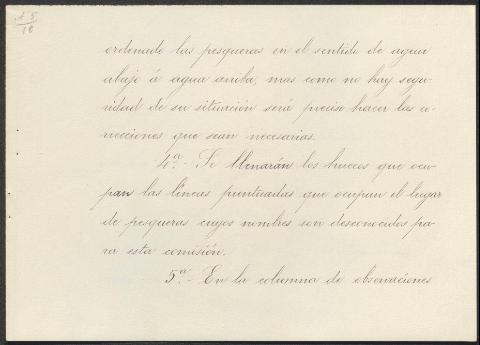 A 5
10
ordenado las pesqueras en el sentido de agua
abajo á agua arriba, mas como no hay segu-
ridad de su situación será preciso hacer las co-
rrecciones que sean necesarias.
4ª.- Se llenarán los huecos que ocu-
pan las líneas puntuadas que ocupan el lugar
de pesqueras cuyos nombres son desconocidos pa-
ra esta comisión.
5ª.- En la columna de observaciones